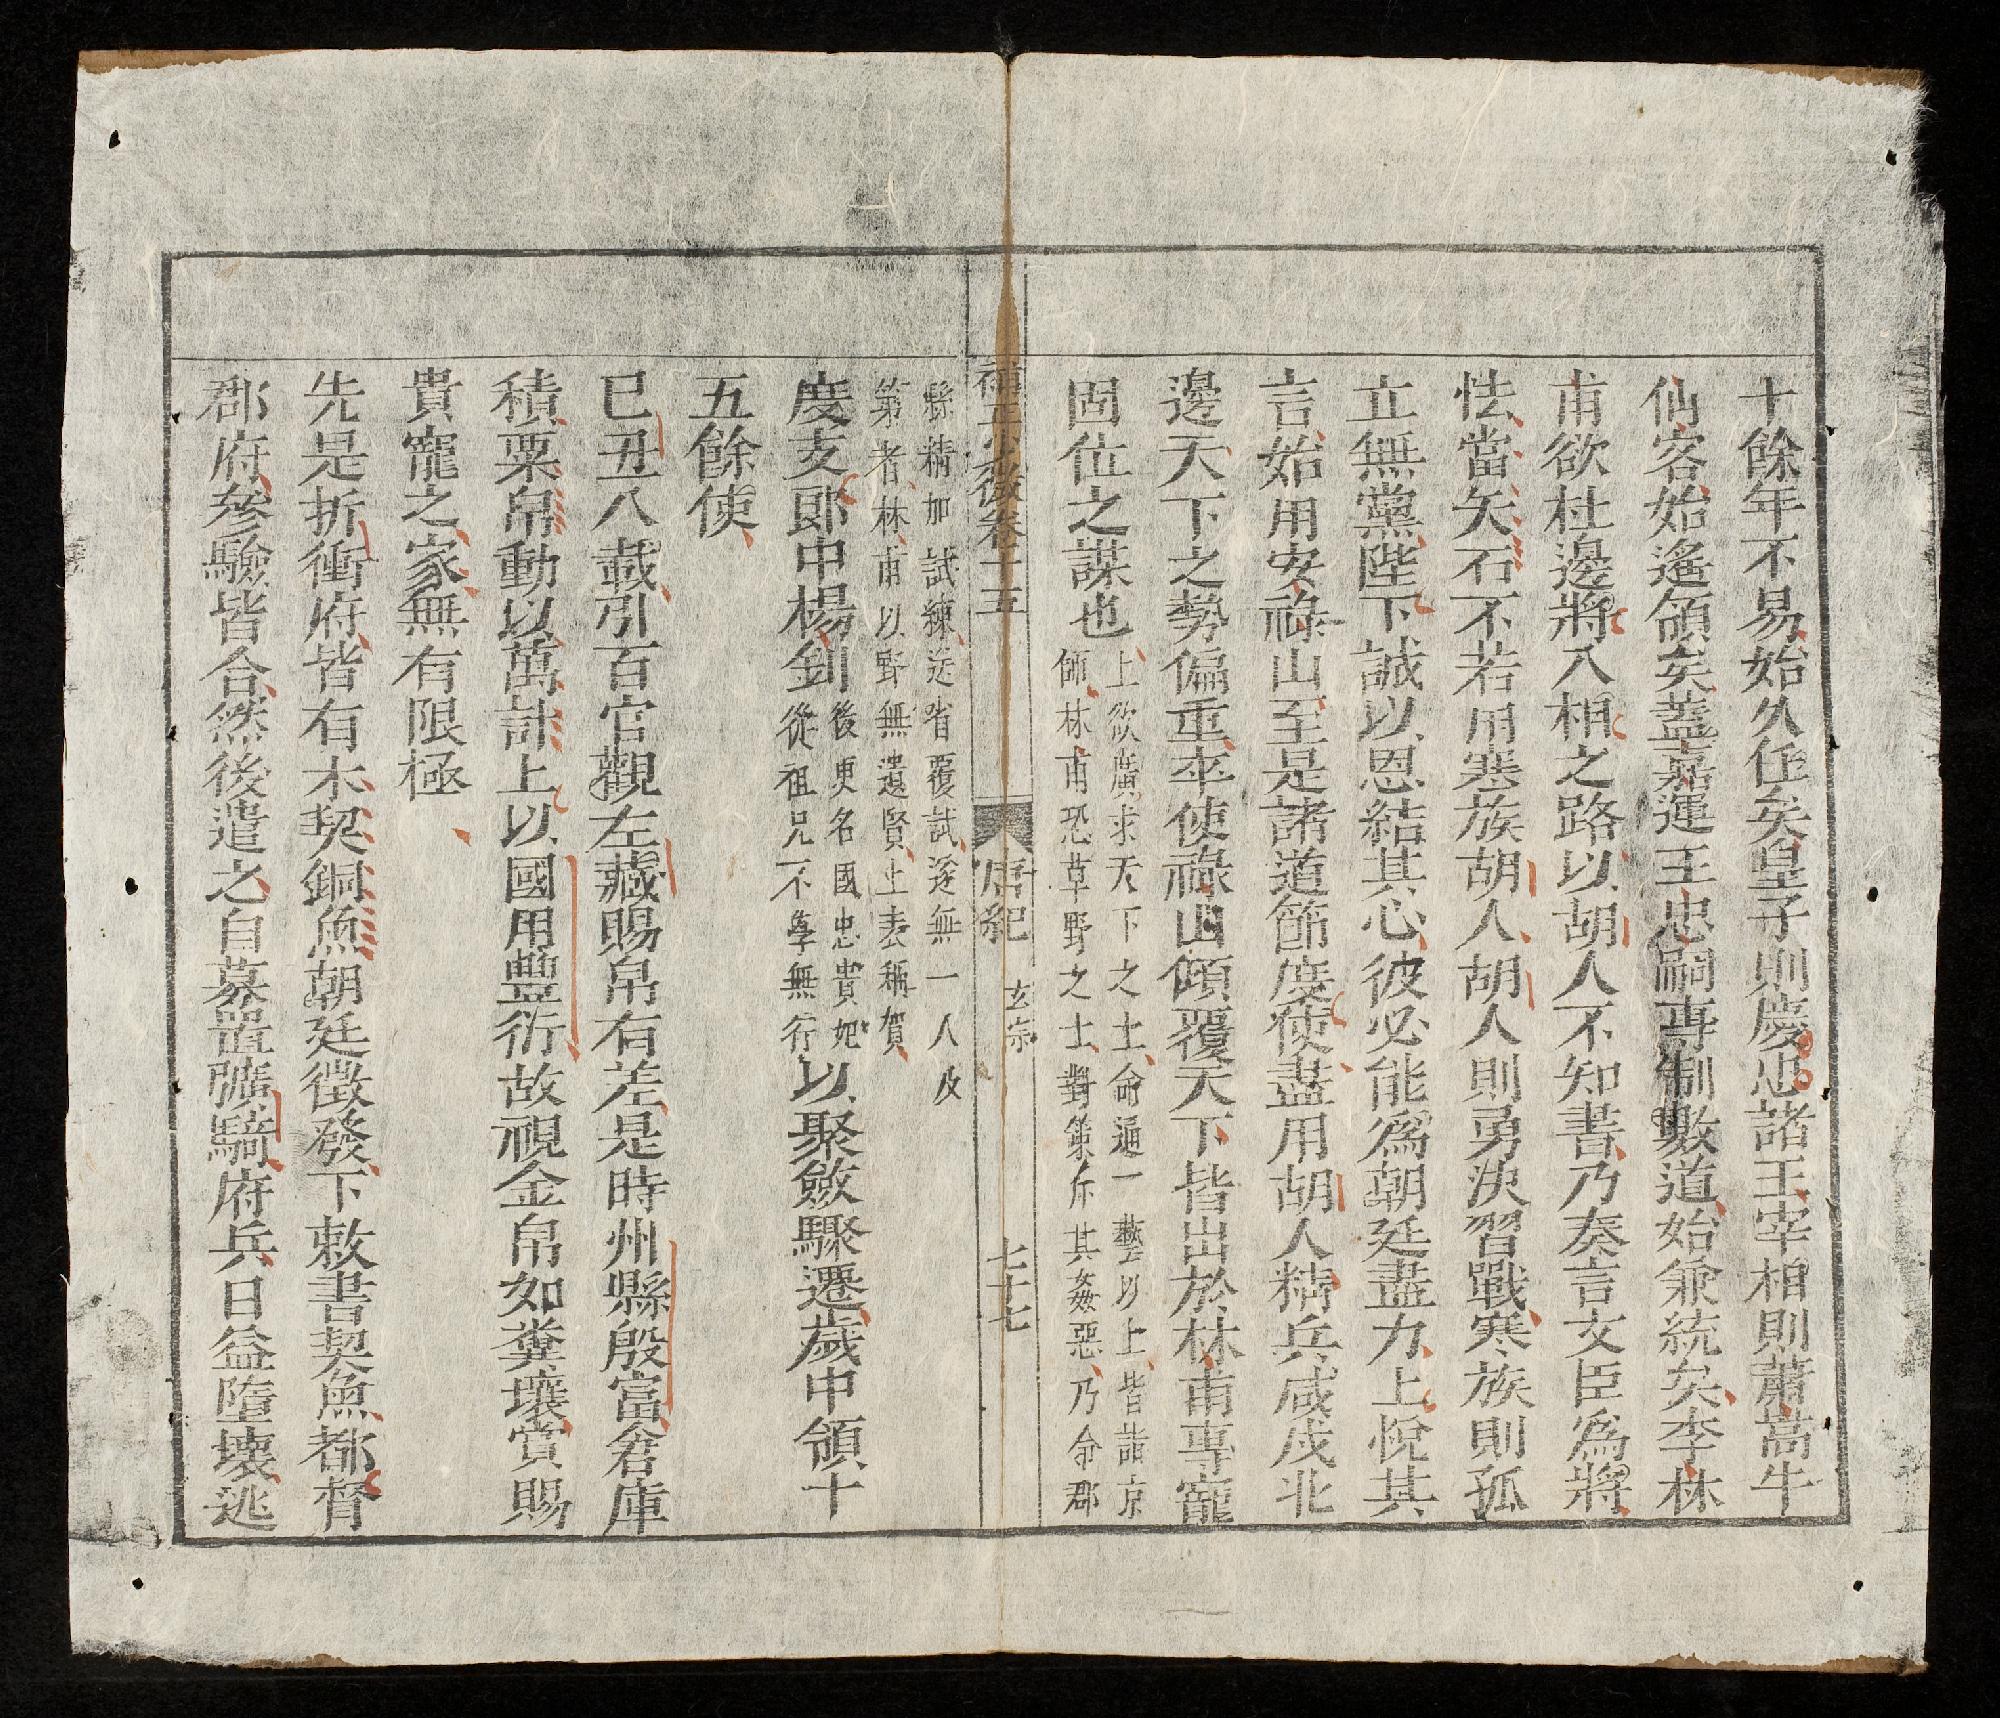 十餘年不易始久任矣皇子則慶忠諸王宰相則蕭嵩牛
仙客始遙領矣蓋嘉運王忠嗣專制數道始兼統矣李林
甫欲杜邊將入相之路以胡人不知書乃奏言文臣爲將
怯當矢石不若用寒族胡人胡人則勇決習戰寒族則孤
立無黨陛下誠以恩結其心彼必能爲朝廷盡力上悅其
言始用安祿山至是諸道節度使盡用胡人精兵咸戍北
邊天下之勢偏重卒使祿山傾覆天下皆出於林甫專寵
固位之謀也
上欲廣求天下之士命通一藝以上皆詣京
師林甫恐草野之士對策斥其姦惡乃命郡
補正少微卷二十五
唐紀 玄宗 七十七
縣精加試練送省覆試遂無一人及
第者林甫以野無遺賢上表稱賀
度支郎中楊釗
後更名國忠貴妃
從祖兄不學無行
以聚斂驟遷歲中領十
五餘使
己丑八載引百官觀左藏賜帛有差是時州縣殷富倉庫
積粟帛動以萬計上以國用豐衍故視金帛如糞壤賞賜
貴寵之家無有限極
先是折衝府皆有木契銅魚朝廷徵發下敕書契魚都督
郡府參驗皆合然後遣之自募置彍騎府兵日益墮壞逃